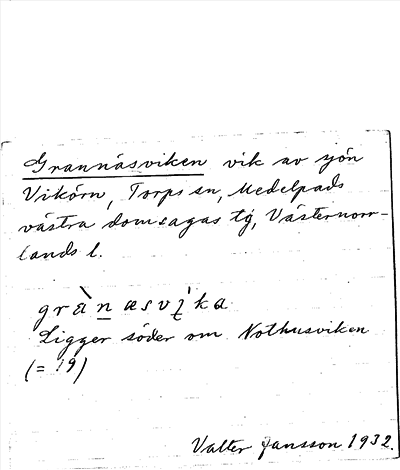 Grannäsviken vik av sjön
Vikörn, Torps sn, Medelpads
västra domsagas tg, Västernorr-
lands l.
grànæsvika
Ligger söder om Nothusviken
(= 19)
Valter Jansson 1932.